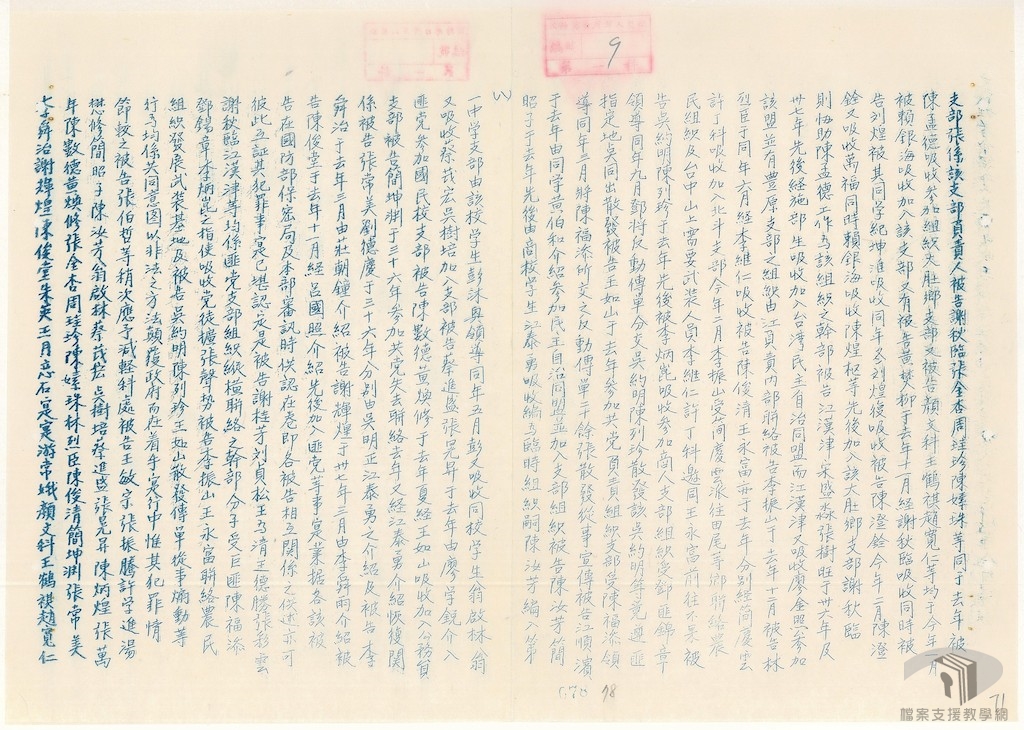 支部張係該支部負責人被告謝秋臨張全杏周瑳珍陳嫁珠等同于去年被
陳孟德吸收參加組織大肚鄉支部又被告顏戈科王鶴祺趙寬仁等均于今年一月
被賴銀海吸收加入該支部又有被告黃樊柳于去年十月經謝秋臨吸收同時被
告列煌被其同學紀坤淮吸收同年名列煌復吸收被告陳澄銓今年二月陳澄
銓又吸收萬福同時賴銀海吸收陳煌樞等先後加入該大肚鄉支部謝秋臨
則協助陳孟德工作為該組織之幹部被告江漢津宋盛淼張樹旺于卅六年及
卅七年先後經施部生吸收加入台灣民主自治同盟而江漢津又吸收廖金照參加
該盟並有豐原支部之組織由江負責內部聯絡被告李振山于去年十二月被告林
烈臣于同年六月經李維仁吸收被告陳俊清王永富亦于去年分別經簡慶雲
許丁科吸收加入北斗支部今年二月李振山受簡慶雲派往田尾等鄉聯絡農
民組織及台中山上需要武裝人員李維仁許丁科邀同王永富前往不果被
告吳約明陳列珍于去年先後被李炳崑吸收參加商人支部組織受鄧匪錫章
領導同年九月鄧將反動傳單分交吳約明陳列珍散發該吳約明等竟遵匪
指定地點同出散發被告王如山于去年參加共黨負責組織支部受陳福添領
導同年三月將陳福添所交之反動傳單二十餘張散發從事宣傳被告江順濱
于去年由同學黃伯和介紹參加民主自治同盟並加入支部組織被告陳汝芳簡
昭子于去年先後由商校學生江泰勇吸收編為臨時組織嗣陳汝芳編入第
一中學支部由該校學生彭沐興領導同年五月彭又吸收同校學生翁啟林翁
又吸收蔡茂宏吳樹培加入支部被告蔡進盛張晃昇于去年由廖學銳介入
匪黨參加國民校支部被告陳數德黃煥修于去年夏經王如山吸收加入公務員
支部被告簡坤淵于三十六年參加共黨失去聯絡去年又經江泰勇介紹恢復關
係被告張常美劉德慶于三十六年分別由吳明正江泰勇之介紹及被告李
舜治于去年三月由莊朝鐘介紹被告謝輝煌于卅七年三月由李舜雨介紹被
告陳俊堂于去年十一月經呂國照介紹先後加入匪黨等事實業據各該被
告在國防部保密局及本部審訊時供認在卷即各被告相互關係之供述亦可
彼此互証其犯罪事實已堪認定是被告謝桂芳劉貞松王為清王德勝張彩雲
謝秋臨江漢津等均係匪黨支部組織縱橫聯絡之幹部分子受巨匪陳福添
鄧錫章李炳崑之指使吸收黨徒擴張聲勢被告李振山王永富聯絡農民
組織發展武裝基地及被告吳約明陳列珍王如山散發傳單從事煽動等
行為均係共同意圖以非法之方法顛覆政府而在着手實行中惟其犯罪情
節較之被告張伯哲等稍次應予減輕科處被告王敏宗張振騰許學進湯
懋修簡昭子陳汝芳翁啟林蔡茂宏吳樹培蔡進盛張晃昇陳炳煌張萬
年陳數德黃煥修張全杏周瑳珍陳嫁珠林烈臣陳俊清簡坤淵張常美
李舜治謝輝煌陳俊堂朱英王月意石寔寔游常娥顏文科王鶴祺趙寬仁
9
678
78
71
檔案支援教學網